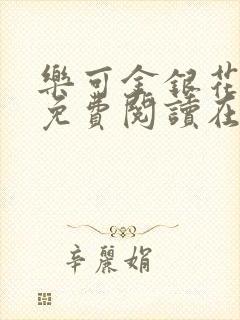 樂可金銀花
免費閱讀在
辛麗娟